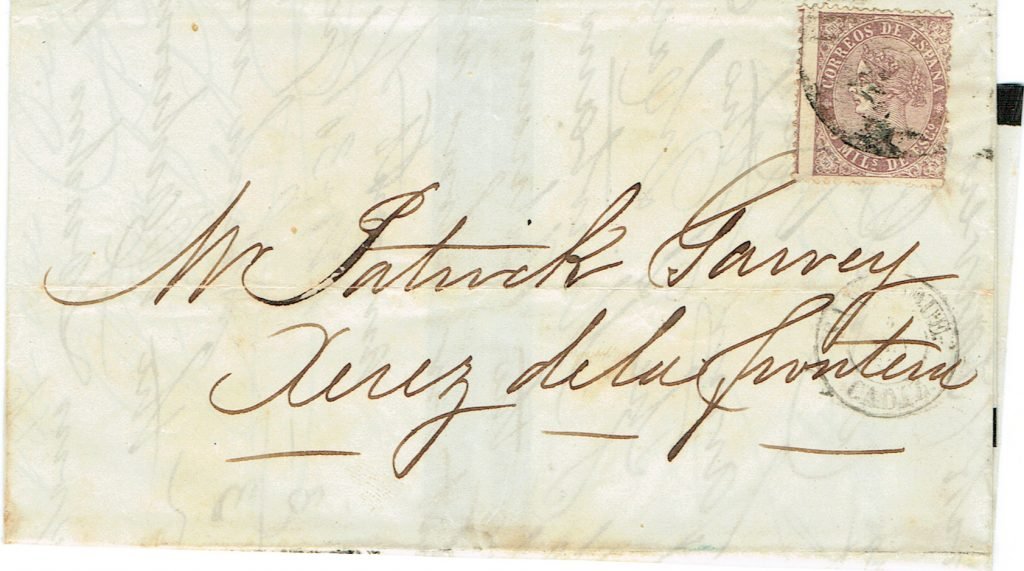 CORREOS DE ESPAÑA
MILS DE ESCO
Mr Patrick Garvey
Xerez de la frontera
CADIZ